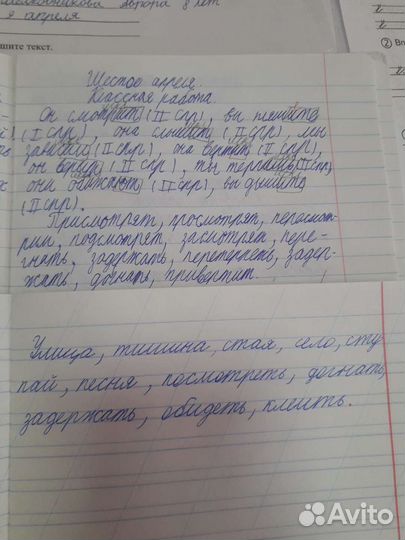 автора 8 лет
9 апреля
шите текст.
2 Вп
Шестое апреля.
Классная работа.
Он смотрит (II спр), вы
(I спр), она слышит (II спр), мы
(II спр), она вертит (II спр),
он (I спр), ты терпишь II спр,
они обижают (I спр), вы дышите
(II спр).
Присмотрят, просмотрят, пересмот-
рим, подсмотрят, засмотрят, пере-
гнать, задержать, перетерпеть, задер-
жать, догнать, привертит.
Улица, тишина, стая, село, сту-
пай, песня, посмотреть, догнать,
задержать, обидеть, клеить.
Avito